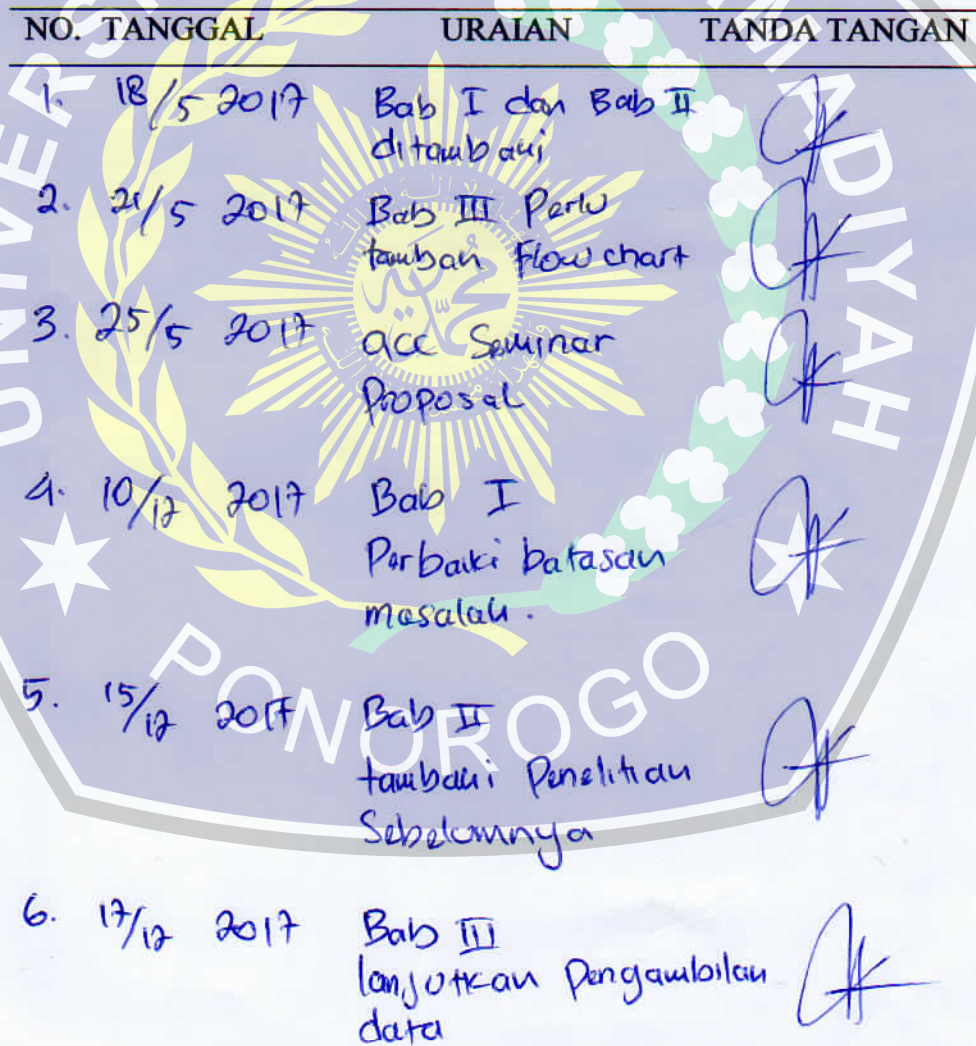 NO. TANGGAL URAIAN TANDA TANGAN
1. 18/5 2017 Bab I dan Bab II
ditambahi
2. 21/5 2017 Bab III Perlu
tambah Flow chart
3. 25/5 2017 acc Seminar
Proposal
4. 10/12 2017 Bab I
Perbaiki batasan
masalah.
5. 15/12 2017 Bab II
tambahi Penelitian
Sebelumnya
6. 17/12 2017 Bab III
lanjutkan Pengambilan
data
PONOROGO